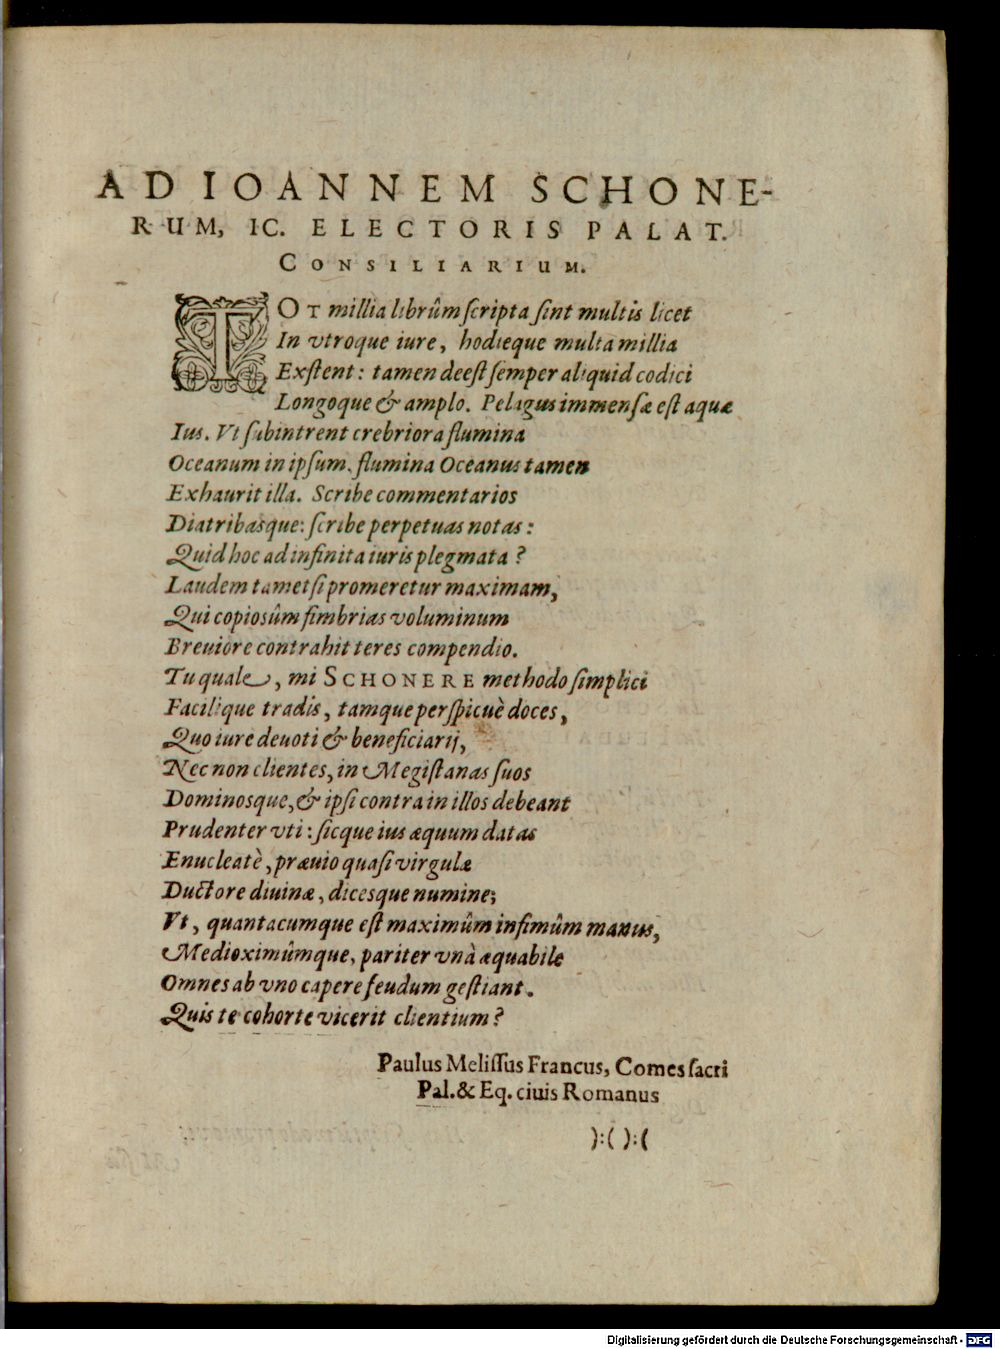 AD IOANNEM SCHONE-
RUM, IC. ELECTORIS PALAT.
CONSILIARIUM.
TOT millia librûm ſcripta ſint multis licet
In vtroque iure, hodieque multa millia
Exſtent: tamen deeſt ſemper aliquid codici
Longoque & amplo. Pelagus immenſæ eſt aquæ
Ius. Vt ſubintrent crebriora flumina
Oceanum in ipſum, flumina Oceanus tamen
Exhaurit illa. Scribe commentarios
Diatribasque: ſcribe perpetuas notas:
Quid hoc ad infinita iuris plegmata?
Laudem tametſi promeretur maximam,
Qui copiosûm fimbrias voluminum
Breuiore contrahit teres compendio.
Tu quale, mi SCHONERE methodo ſimplici
Facilique tradis, tamque perſpicuè doces,
Quo iure deuoti & beneficiarij,
Nec non clientes, in Megiſtanas ſuos
Dominosque, & ipſi contra in illos debeant
Prudenter vti: ſicque ius æquum datas
Enucleatè, præuio quaſi virgulæ
Ductore diuinæ, dicesque numine;
Vt, quantacumque eſt maximûm infimûm manus,
Medioximûmque, pariter vnà æquabile
Omnes ab vno capere feudum geſtiant.
Quis te cohorte vicerit clientium?
Paulus Meliſſus Francus, Comes ſacri
Pal. & Eq. ciuis Romanus
):( ):(
Digitalisierung gefördert durch die Deutsche Forschungsgemeinschaft - DFG